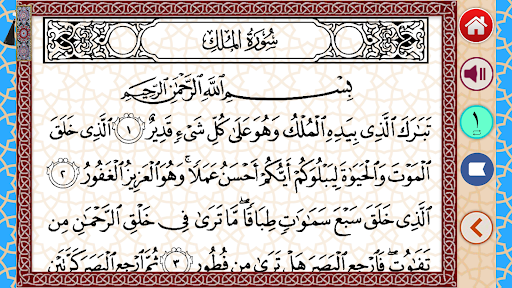 سُورَةُ المُلْكِ
بِسْمِ ٱللَّهِ ٱلرَّحْمَٰنِ ٱلرَّحِيمِ
تَبَٰرَكَ ٱلَّذِى بِيَدِهِ ٱلْمُلْكُ وَهُوَ عَلَىٰ كُلِّ شَىْءٍ قَدِيرٌ ١ ٱلَّذِى خَلَقَ
ٱلْمَوْتَ وَٱلْحَيَوٰةَ لِيَبْلُوَكُمْ أَيُّكُمْ أَحْسَنُ عَمَلًا ۚ وَهُوَ ٱلْعَزِيزُ ٱلْغَفُورُ ٢
ٱلَّذِى خَلَقَ سَبْعَ سَمَٰوَٰتٍ طِبَاقًا ۖ مَّا تَرَىٰ فِى خَلْقِ ٱلرَّحْمَٰنِ مِن
تَفَٰوُتٍ ۖ فَٱرْجِعِ ٱلْبَصَرَ هَلْ تَرَىٰ مِن فُطُورٍ ٣ ثُمَّ ٱرْجِعِ ٱلْبَصَرَ كَرَّتَيْنِ
١